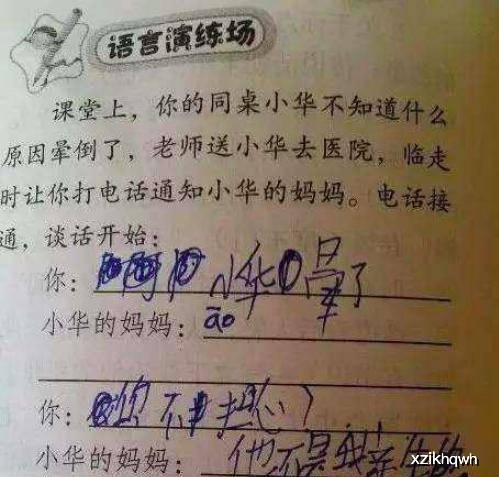 语言演练场
课堂上，你的同桌小华不知道什么
原因晕倒了，老师送小华去医院，临走
时让你打电话通知小华的妈妈。电话接
通，谈话开始：
你： 小华晕了
小华的妈妈：āo
你：你不担心？
小华的妈妈：他不是我亲生的
xzikhqwh